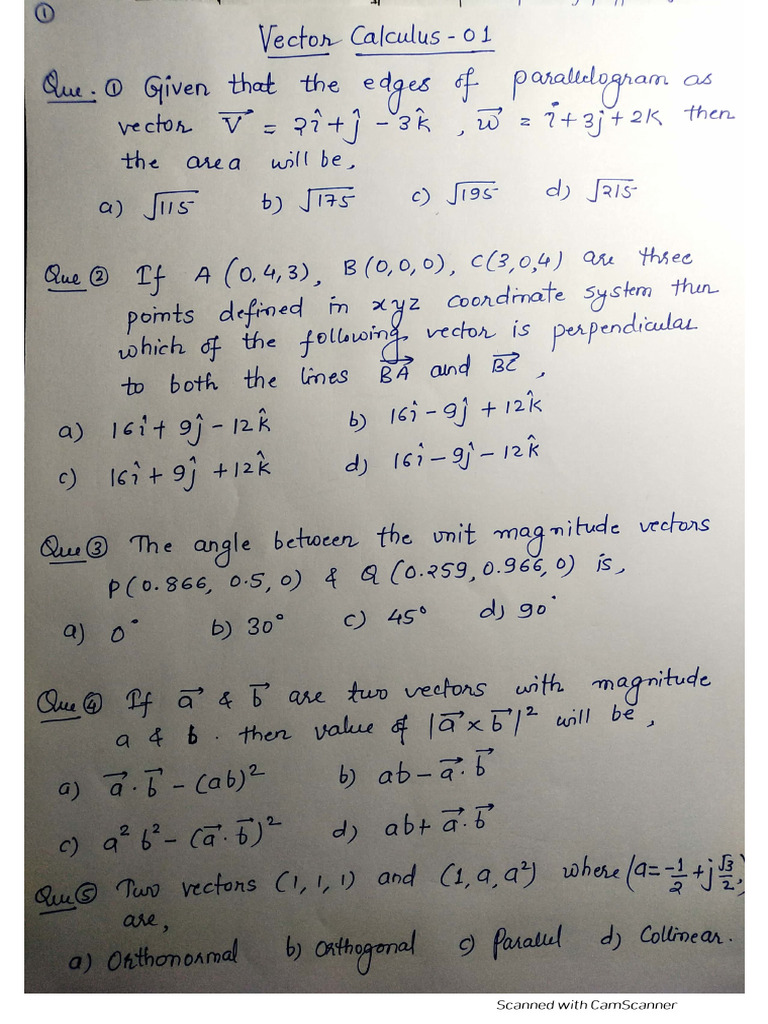 ①
Vector Calculus - 01
Que. ① Given that the edges of parallelogram as
vector V⃗ = 2î + ĵ - 3k̂ , w⃗ = i + 3j + 2K then
the area will be,
a) √115 b) √175 c) √195 d) √215
Que ② If A (0,4,3), B(0,0,0), C(3,0,4) are three
points defined in xyz coordinate system then
which of the following vector is perpendicular
to both the lines BA⃗ and BC⃗ ,
a) 16î + 9ĵ - 12k̂ b) 16î - 9ĵ + 12k̂
c) 16î + 9ĵ + 12k̂ d) 16î - 9ĵ - 12k̂
Que ③ The angle between the unit magnitude vectors
P(0.866, 0.5, 0) & Q(0.259, 0.966, 0) is,
a) 0° b) 30° c) 45° d) 90°
Que ④ If a⃗ & b⃗ are two vectors with magnitude
a & b. then value of |a⃗ × b⃗|² will be,
a) a⃗ . b⃗ - (ab)² b) ab - a⃗ . b⃗
c) a² b² - (a⃗ . b⃗)² d) ab + a⃗ . b⃗
Que ⑤ Two vectors (1, 1, 1) and (1, a, a²) where (a = -1/2 + j √3/2,)
are,
a) Orthonormal b) Orthogonal c) Parallel d) Collinear.
Scanned with CamScanner